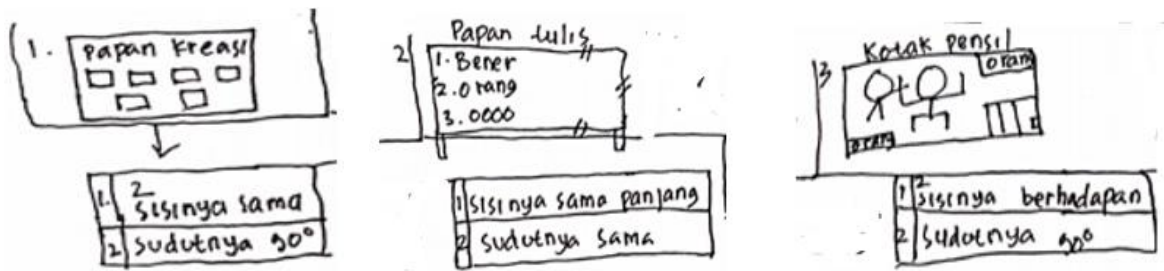 1. Papan kreasi
1. 2 sisinya sama
2 sudutnya 90°
2 Papan tulis
1. Bener
2. orang
3. 0000
1 sisinya sama panjang
2 sudutnya sama
3 Kotak pensil
orang
1 2 sisinya berhadapan
2 sudutnya 90°